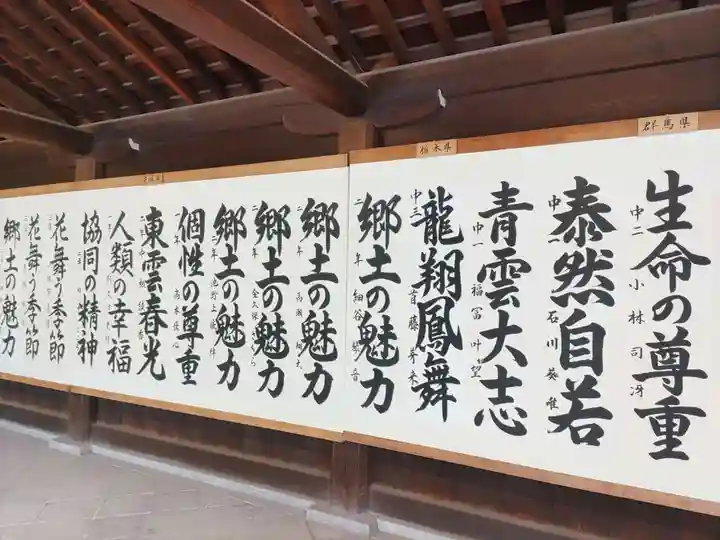 群馬県
生命の尊重
中二 小林司冴
泰然自若
中一 石川葵唯
栃木県
青雲大志
中一 福冨叶望
龍翔鳳舞
中三 首藤
郷土の魅力
二年 細谷
郷土の魅力
二年 高瀬
郷土の魅力
二年 金久保
郷土の魅力
個性の尊重
一年
東雲春光
人類の幸福
協同の精神
花舞う季節
花舞う季節
郷土の魅力